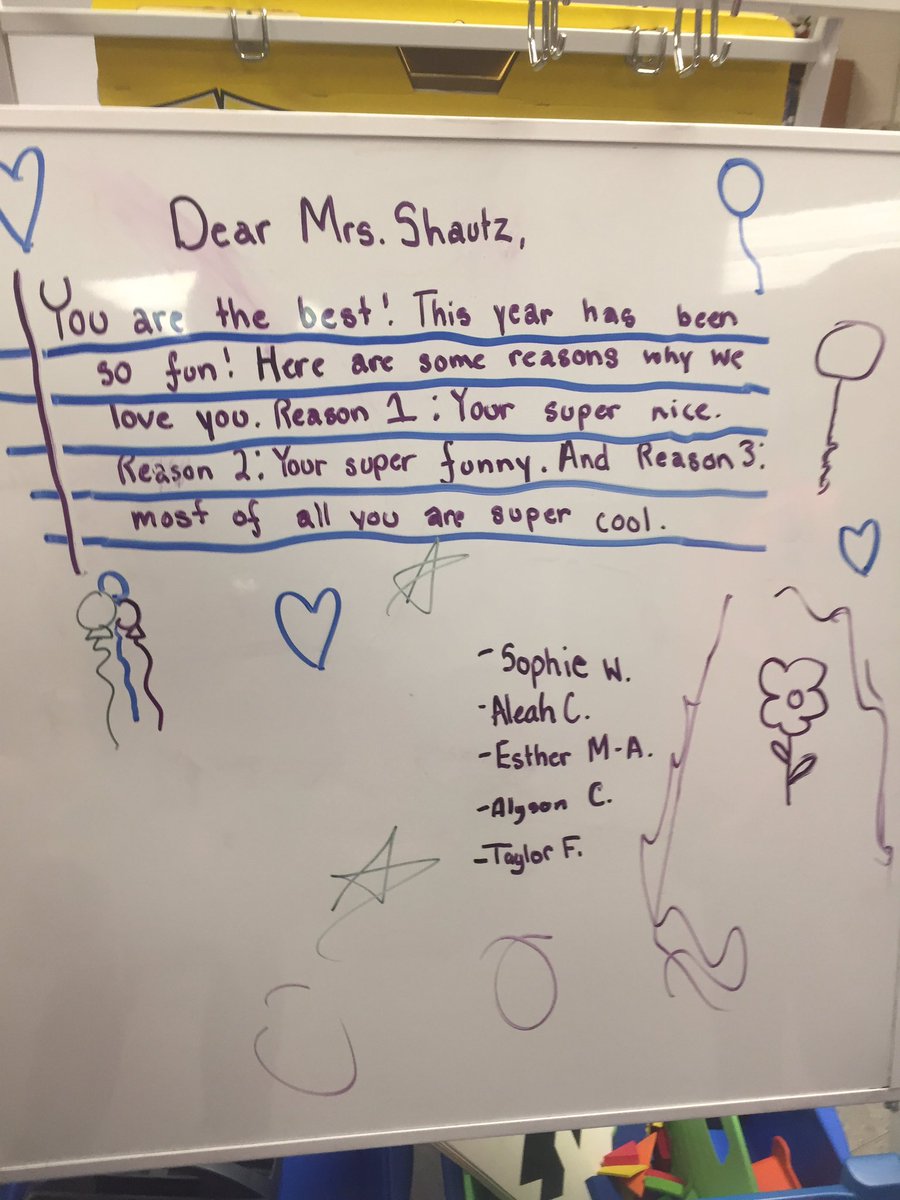 Dear Mrs. Shautz,
You are the best! This year has been
so fun! Here are some reasons why we
love you. Reason 1: Your super nice.
Reason 2: Your super funny. And Reason 3:
most of all you are super cool.
- Sophie W.
- Aleah C.
- Esther M-A.
- Alyson C.
- Taylor F.